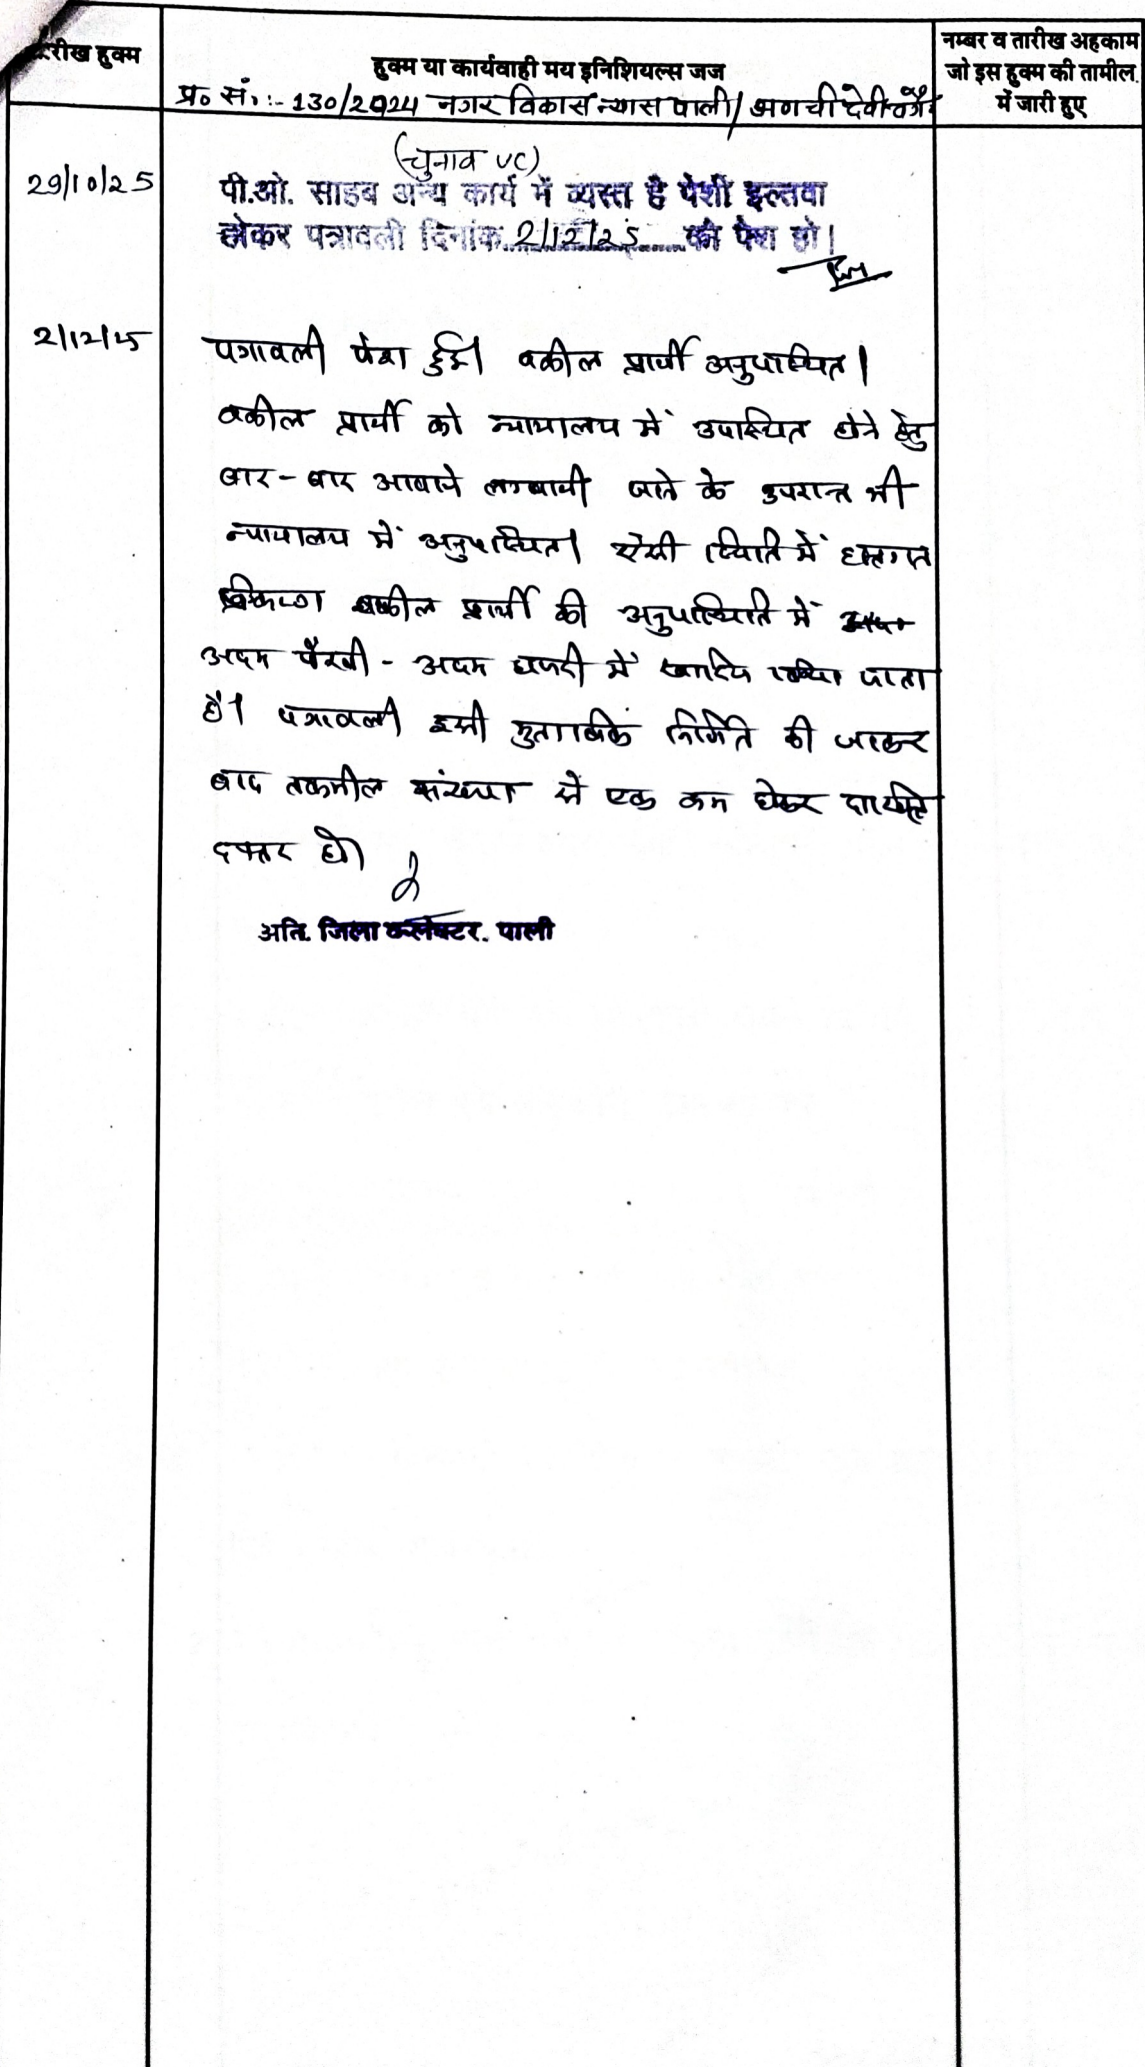 तारीख हुक्म
हुक्म या कार्यवाही मय इनिशियल्स जज
नम्बर व तारीख अहकाम
जो इस हुक्म की तामील
में जारी हुए
प्र० सं. :- 130/2024 नगर विकास न्यास पाली/ अणची देवी वगै०
(चुनाव VC)
29/10/25
पी.ओ. साहब अन्य कार्य में व्यस्त है पेशी इल्तवा
होकर पत्रावली दिनांक 2/12/25 को पेश हो।
2/12/25
पत्रावली पेश हुई। वकील प्रार्थी अनुपस्थित।
वकील प्रार्थी को न्यायालय में उपस्थित होने हेतु
बार-बार आवाजे लगवायी जाने के उपरान्त भी
न्यायालय में अनुपस्थित। ऐसी स्थिति में हस्तगत
प्रकरण वकील प्रार्थी की अनुपस्थिति में
अदम पैरवी - अदम हाजरी में खारिज किया जाता
है। पत्रावली इसी मुताबिक निर्णित की जाकर
बाद तकमील संख्या से एक कम होकर दाखिल
दफ्तर हो।
अति. जिला कलेक्टर. पाली